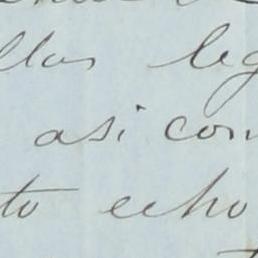 llas leg
asi com
to echo